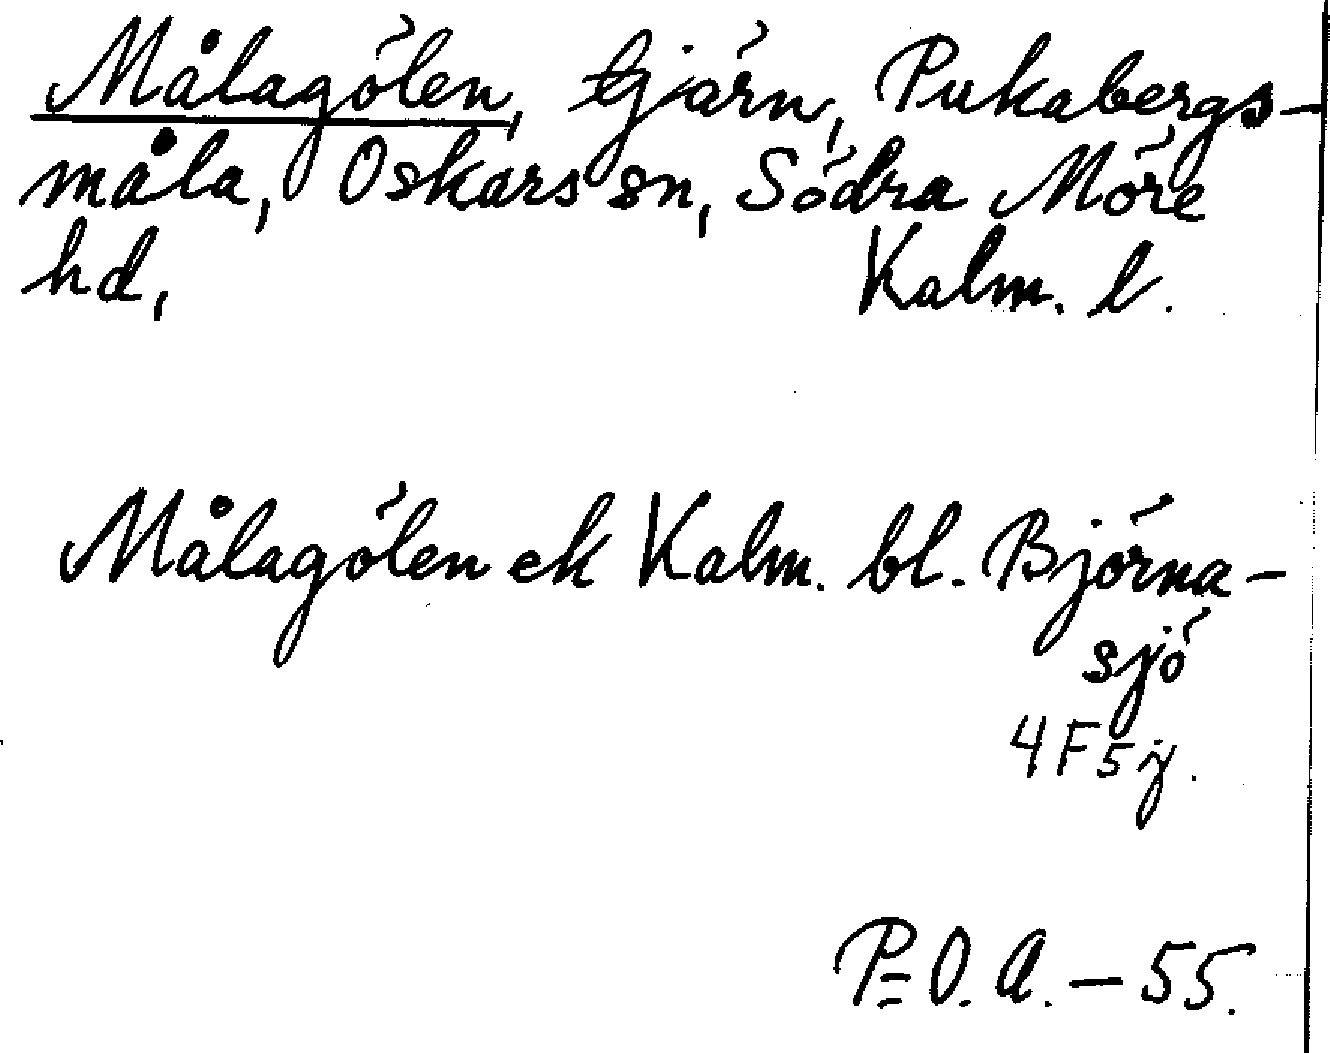 Målagölen, tjärn, Pukabergs-
måla, Oskars sn, Södra Möre
hd, Kalm. l.
Målagölen ek Kalm. bl. Björna-
sjö
4F5j.
P=O.A. - 55.